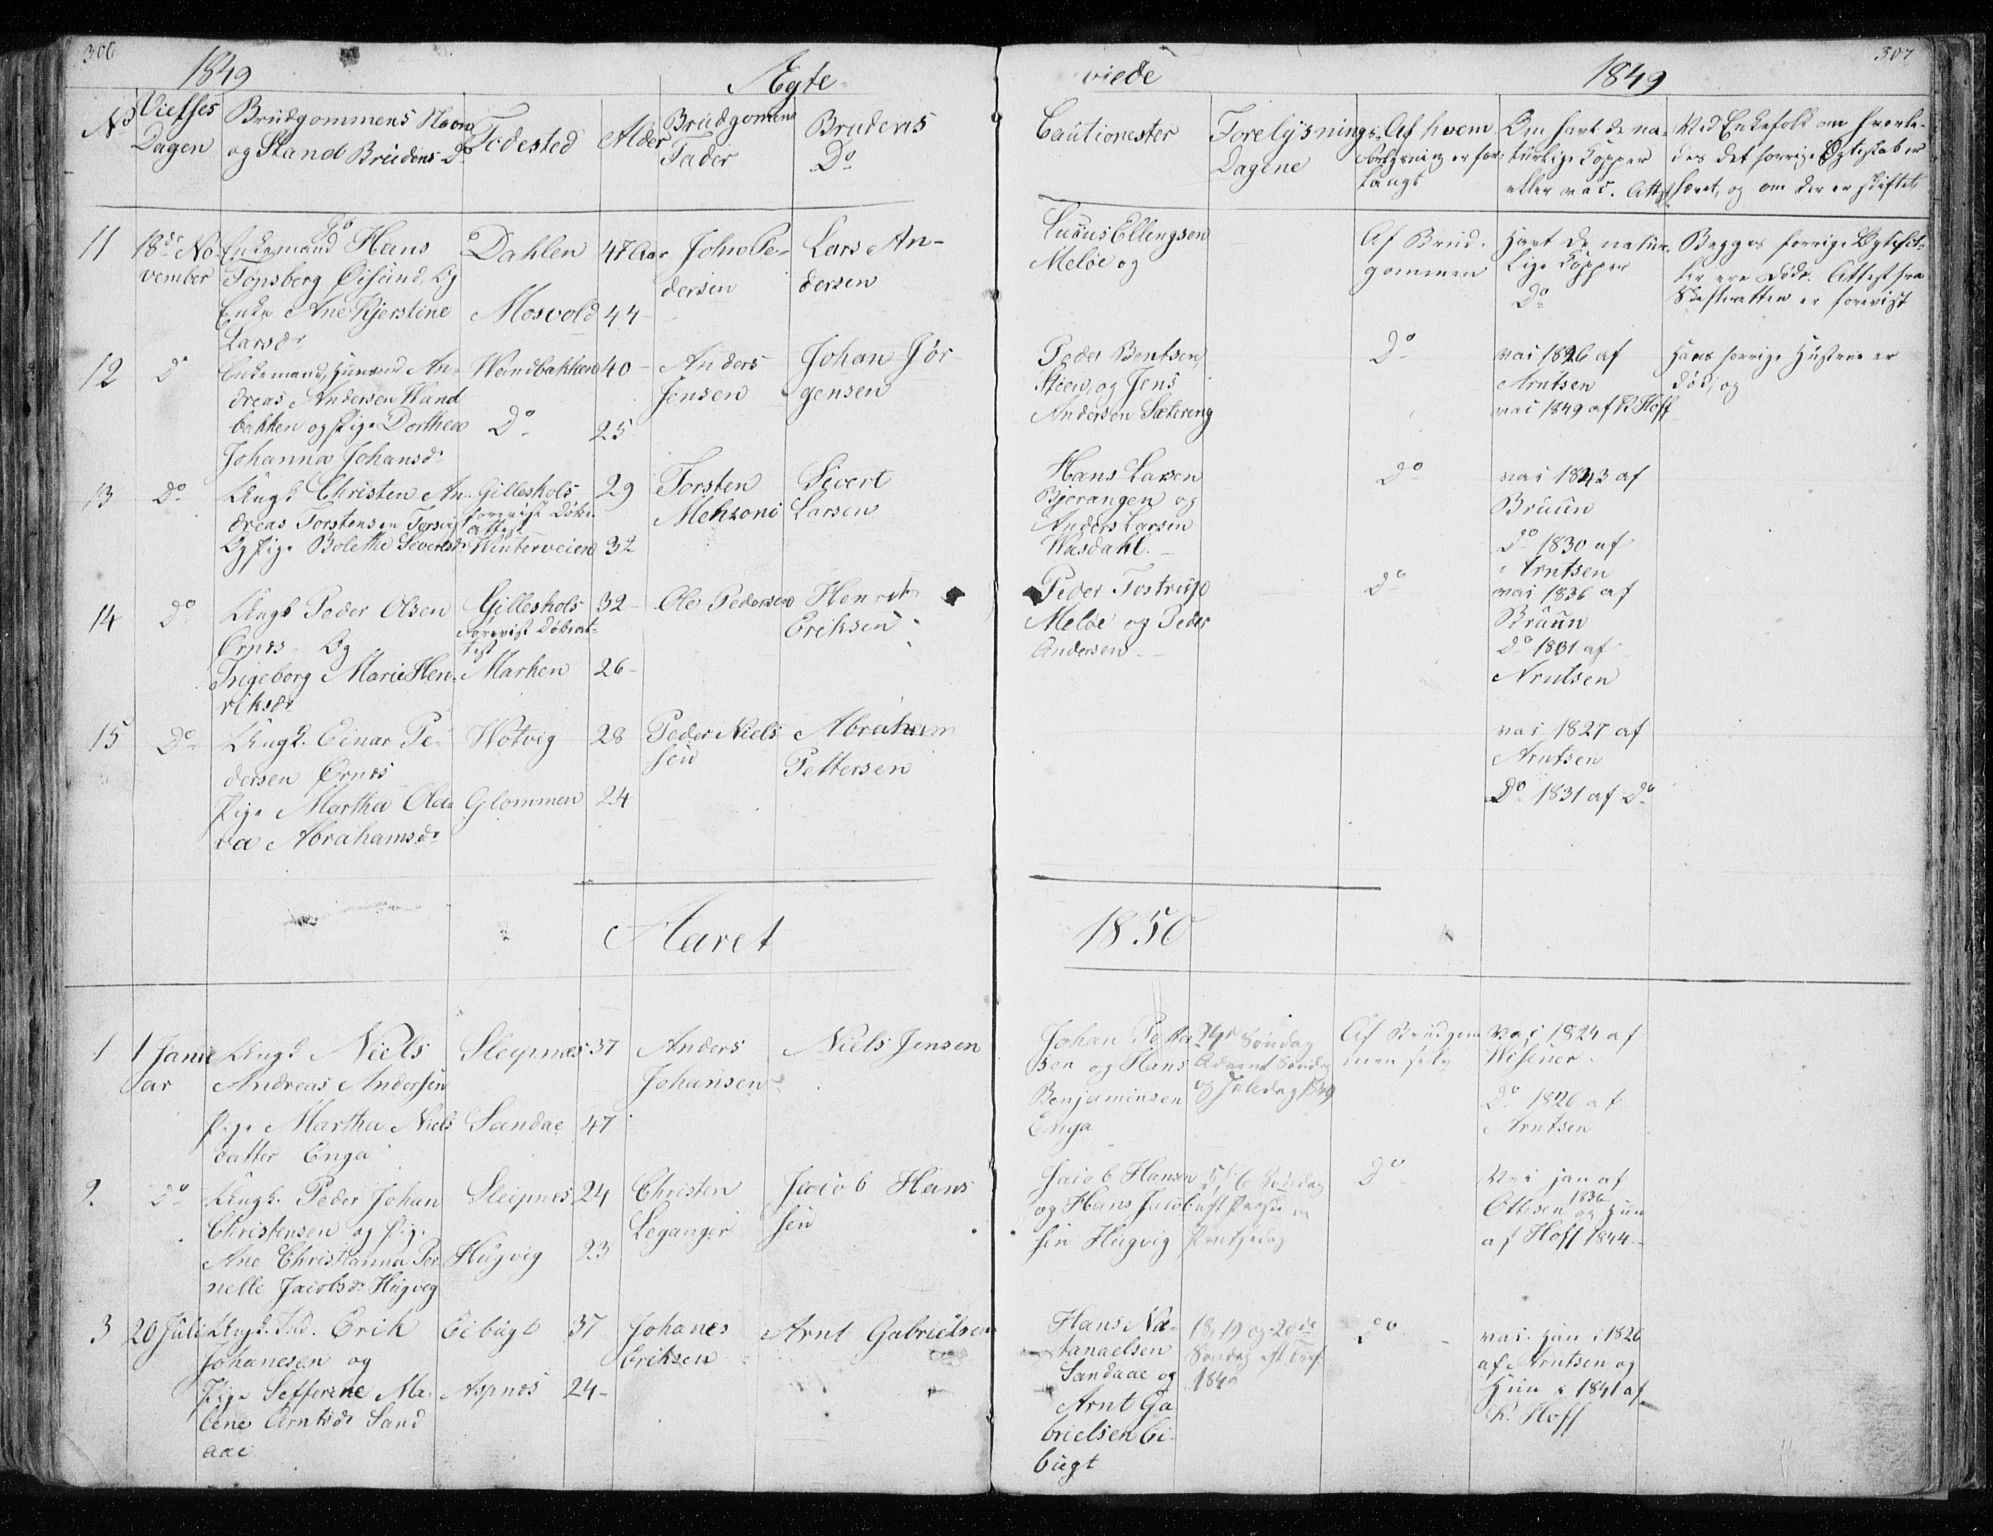 306
1849
Ægte-
viede
1849
307
No
Vielses Dagen
Brudgommens Navn og Stand Brudens Do
Fødested
Alder
Brudgomens Fader
Brudens Do
Cautionester
Forelysnings Dagene
Af hvem
forlangt
Om havt de naturlige Kopper eller vac. Attest
Ved Enkefolk om hvorledes det forrige Ægteskab er hævet, og om der er skiftet
11
18de November
Enkemand Hans
Tønsberg Øisund, Og
Enke Ane Kjerstine
Larsdr
Dahlen
Mosvold
47 Aar
44
John Pedersen
Lars Andersen
Ellingsen
Meløe og
Af Brudgommen
Havt de naturlige Kopper
Do
Begges forrige Ægtefæller ere døde. Attest fra Skifteretten er forevist
12
Do
Enkemand, Huusmand Andreas Andersen Wandbakken og Pige Dorthea
Johanna Johansdr
Wandbakken
Do
40
25
Anders Jensen
Johan Jørgensen
Peder Bentsen
Støen, og Jens
Andersen Sætereng
Do
vac 1826 af
Arntsen
vac 1849 af K Hoff
Hans forrige Hustru er død, og
13
Do
Ungk Christen Andreas Torstensen
Og Pige Bolethe Sivertsdr
Gilleskols
forevist Døbeattest
Winterveien
29
32
Torsten
Sivert Larsen
Hans Larsen
Bjerangen og
Anders Larsen
Wasdahl
Do
vac 1843 af
Bruun
Do 1830 af
Arntsen
14
Do
Ungk Peder Olsen
Ørnes Og
Ingeborg Marie Henriksdr
Gilleskols
forevist Døbeattest
Marken
32
26
Ole Pedersen
Henrik Eriksen
Peder
Meløe og Peder
Andersen
Do
vac 1836 af
Bruun
Do 1831 af
Arntsen
15
Do
Ungk. Einar Pedersen Ørnes
Pige Martha Oleava Abrahamsdr
Høtvig
Glommen
28
24
Peder Nielsen
Abraham
Pettersen
vac 1827 af
Arntsen
Do 1831 af Do
Aaret
1850
1
1 Januar
Ungk Niels
Andreas Andersen
Pige Martha Nielsdatter Enga
Sleipnes
Sandae
37
47
Anders
Johansen
Niels Jensen
Johan Pettersen og Hans
Benjaminsen
Enga
Søndag
Advent Søndag
og Juledag 1849
Af Brudgommen selv
vac 1824 af
Wisener
Do 1826 af
Arntsen
2
Do
Ungk. Peder Johan
Christensen og Pige
Ane Christianna Pernelle Jacobsdr Hugvig
Sleipnes
Hugvig
24
23
Christen
Leganger
Jacob Hansen
Jacob Hansen
og Hans Jacobsen Hugvig
Do
Vac han af
Ottesen 1836 og hun
af Hoff 1844
3
20 Juli
Ungk. Ind. Erik
Johanesen og
Pige Sefferene Mabene Arntsdr Sandaae
Eibugt
Aspnes
37
24
Johanes
Eriksen
Arnt Gabrielsen
Hans Natanaelsen
Sandaae og
Arnt Gabrielsen Eibugt
18, 19 og 20de
Søndag eft Tref.
1849
Do
vac. han i 1826
af Arntsen og
Hun i 1841 af
K. Hoff